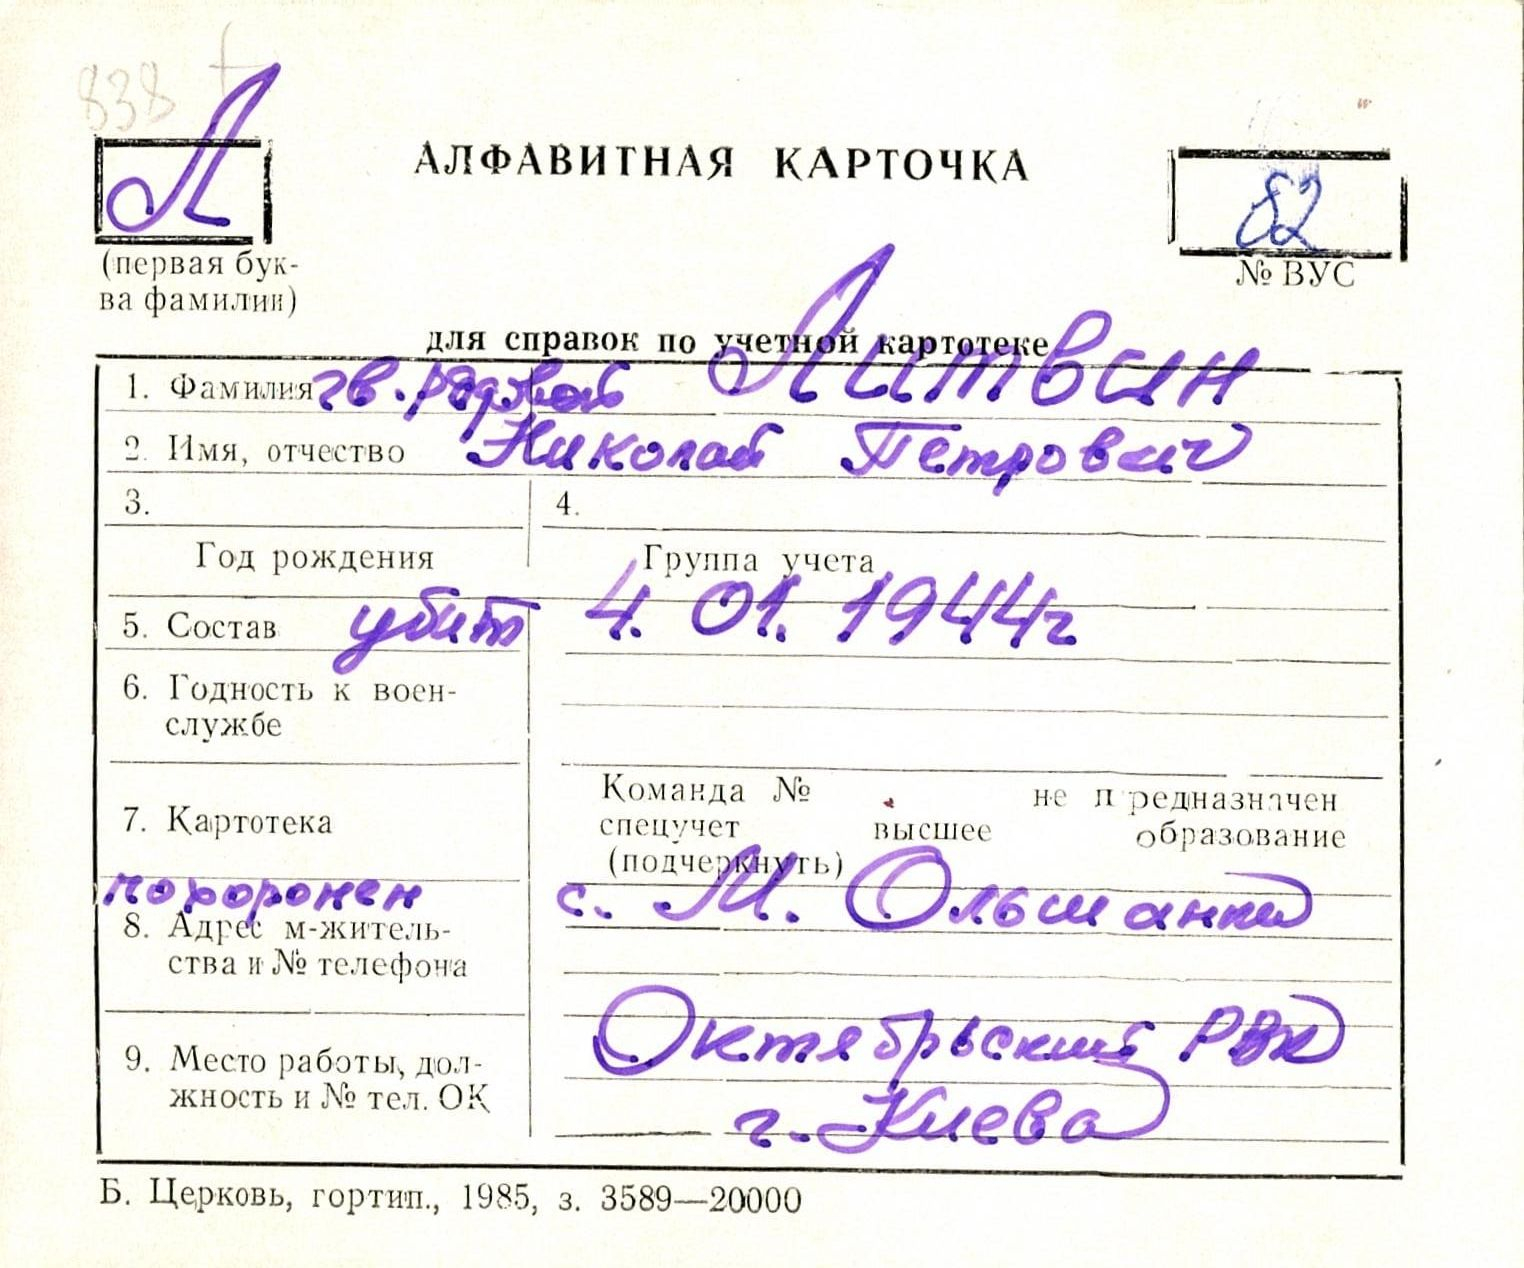 838 +
Л
АЛФАВИТНАЯ КАРТОЧКА
82
(первая бук-
ва фамилии)
№ ВУС
для справок по учетной картотеке
1. Фамилия гв. рядовой Литвин
2. Имя, отчество Николай Петрович
3. 4.
Год рождения Группа учета
5. Состав убит 4. 01. 1944г
6. Годность к воен-
службе
7. Картотека
Команда № не предназначен
спецучет высшее образование
(подчеркнуть)
похоронен с. М. Ольшанка
8. Адрес м-житель-
ства и № телефона
9. Место работы, дол-
жность и № тел. ОК
Октябрьский РВК
г. Киева
Б. Церковь, гортип., 1985, з. 3589—20000